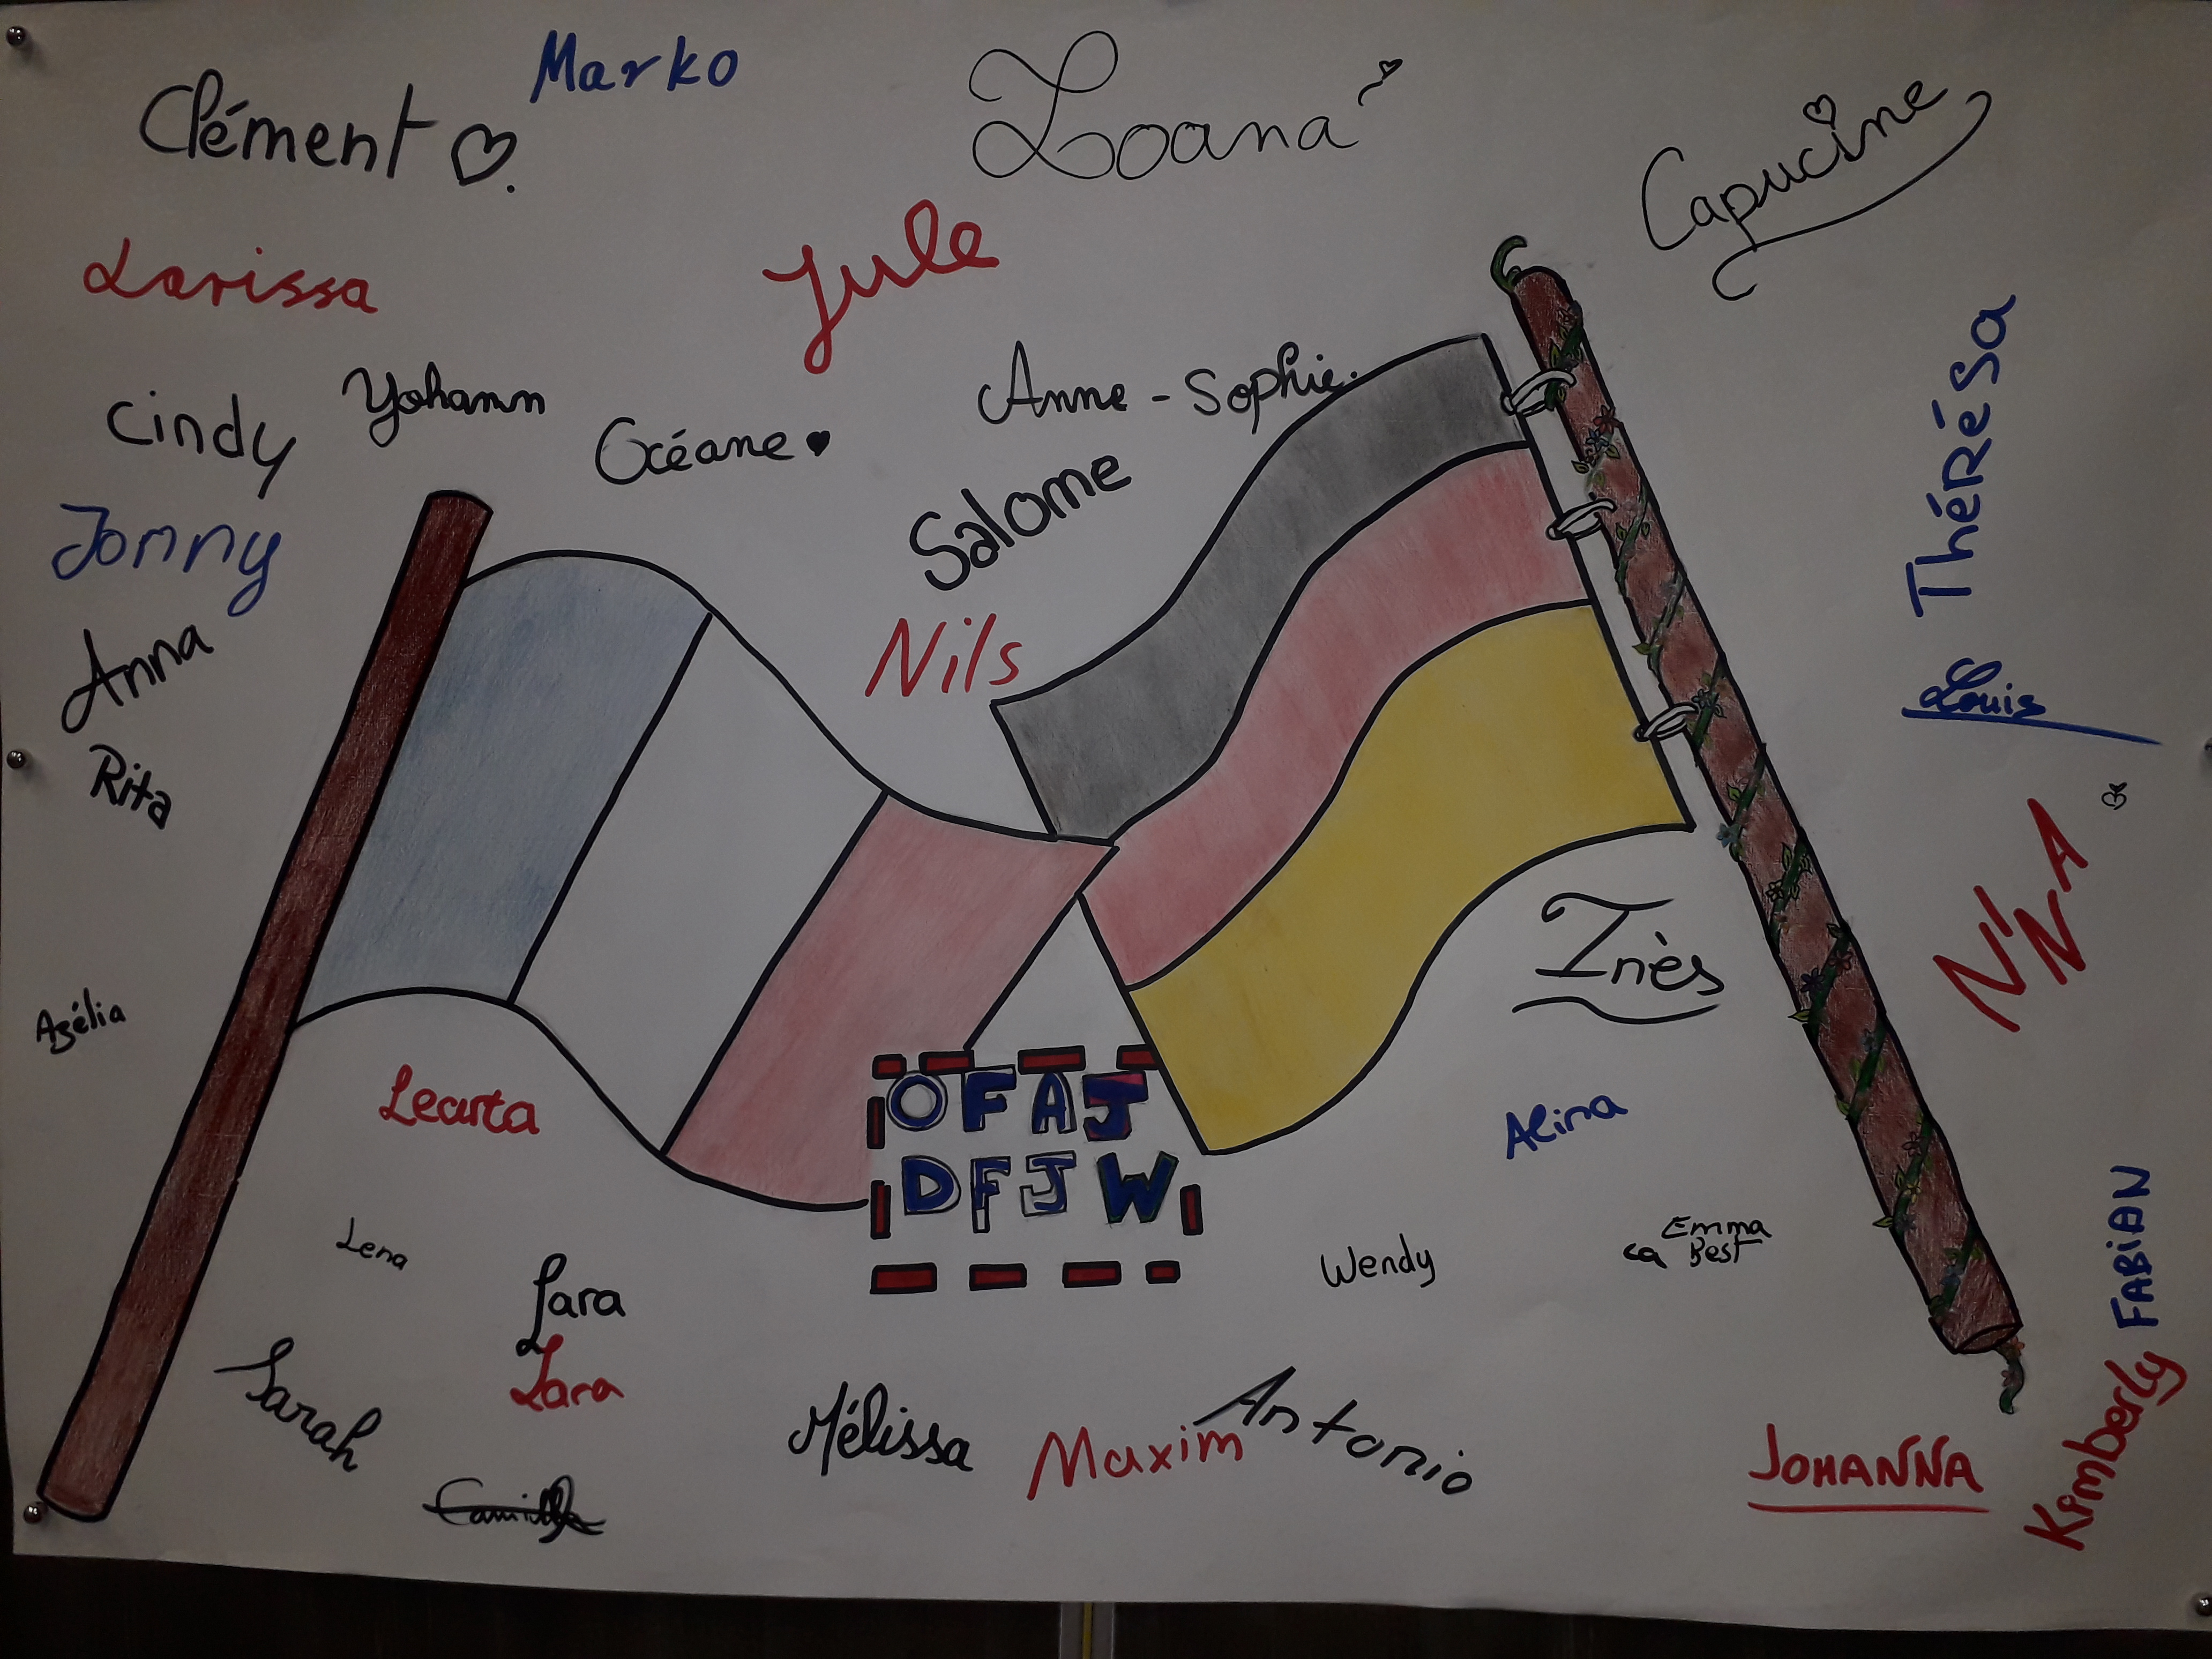 Marko
Clément
Loana
Capucine
Larissa
Jule
Thérésa
Cindy
Yohann
Océane
Anne-Sophie.
Salome
Jonny
Anna
Nils
Louis
Rita
NiNA
Inès
Azélia
Learta
OFAJ
DFJW
Alina
Lena
Lara
Wendy
Emma
ca Best
FABiAN
Sarah
Lara
Mélissa
Maxim
Antonio
JOHANNA
Kimberly